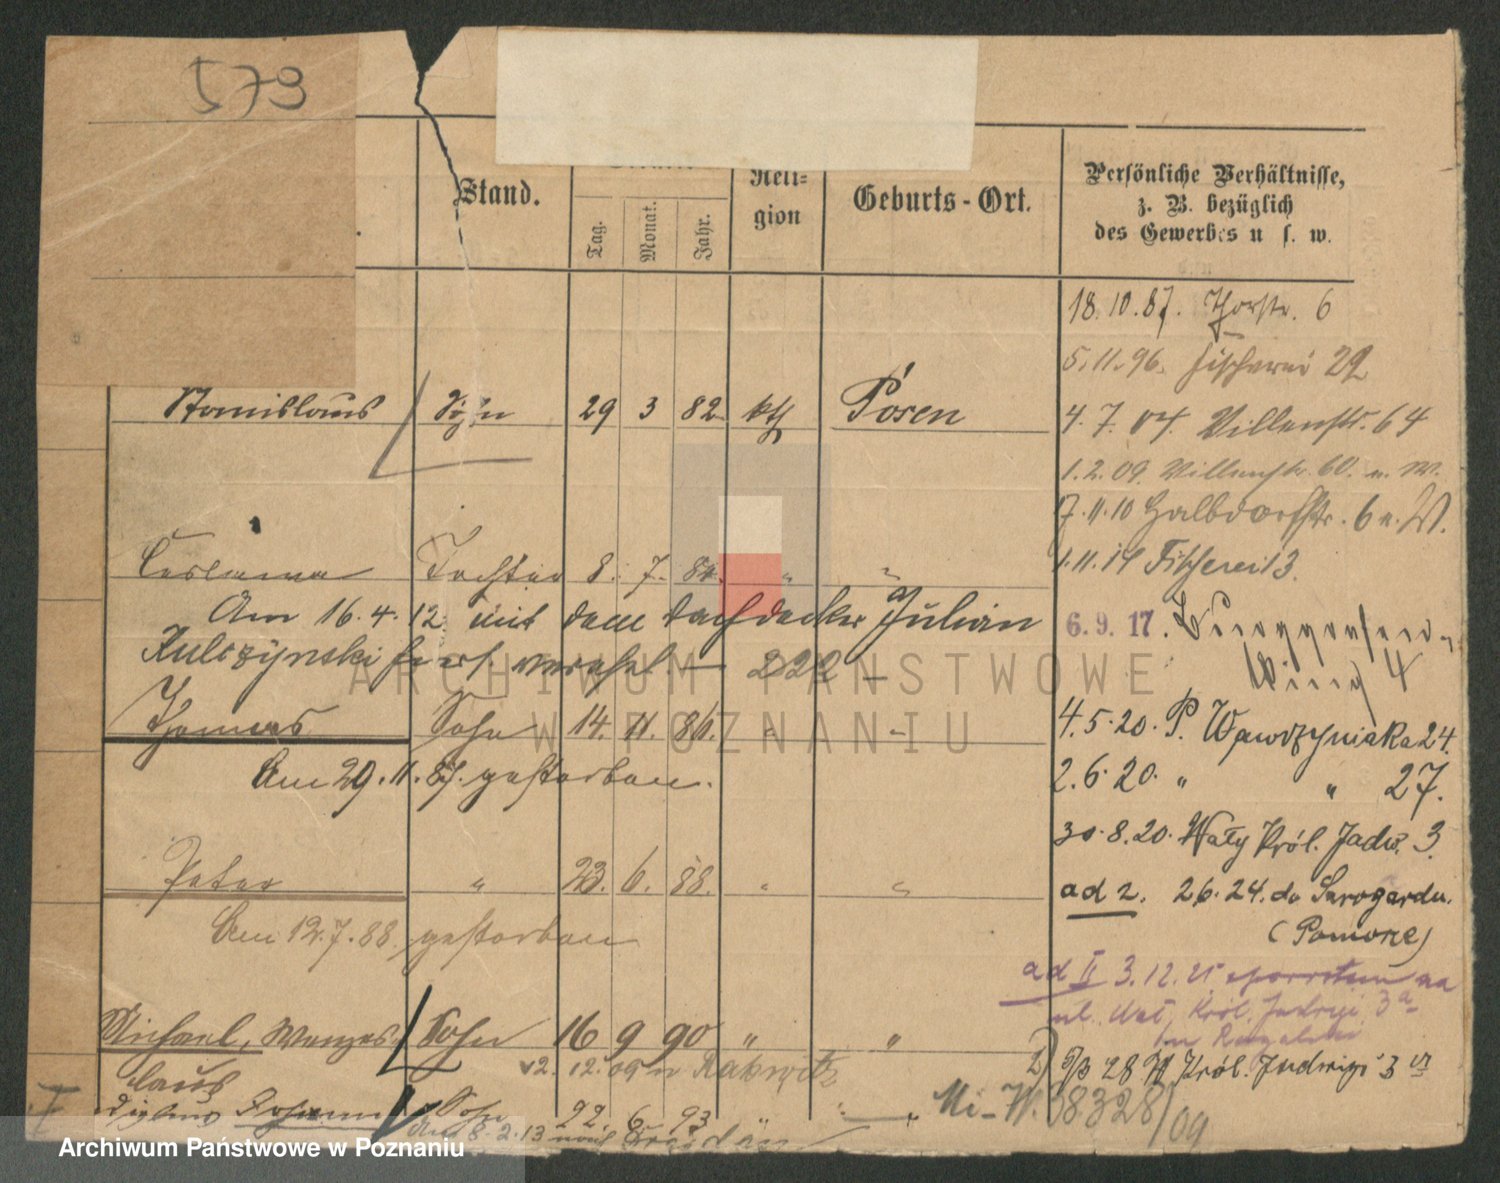 573
Stand.
Tag.
Monat.
Jahr.
Reli-
gion
Geburts-Ort.
Persönliche Verhältnisse,
z. B. bezüglich
des Gewerbes u. s. w.
18.10.87. Thorstr. 6
5.11.96. Fischerei 29
Stanislaus Sohn 29 3 82 kth Posen
4.7.07. Villenstr. 64
1.2.09. Villenstr. 60. u. W.
7.11.10 Halbdorfstr. 6 u. W.
Ceslawa Tochter 8. 7. 84. " "
1.11.14 Fischerei 3.
Am 16.4.12 mit dem Dachdecker Julian
Kulczynski verehel. 222
6.9.17.
Wing 4
Thomas Sohn 14. 11. 86. " "
4.5.20. P. Wawrzyniaka 24.
Am 29.11.87. gestorben.
2.6.20. " " 27.
30.8.20. Wały Król. Jadw. 3.
Peter " 23. 6. 88. " "
ad 2. 26.24. do Starogardu.
(Pomorze)
Am 12.7.88. gestorben
ad II 3.12.25 na
ul. Król. Jadwigi 3a
Michael, Wenzes- Sohn 16 9 90 " "
laus
2.12.09 n Rakwitz
28 W Król. Jadwigi 3
Johann Sohn 22. 6. 93 " "
Mi-W. 38328/09
8.2.13 nach
I
ARCHIWUM PAŃSTWOWE
W POZNANIU
Archiwum Państwowe w Poznaniu